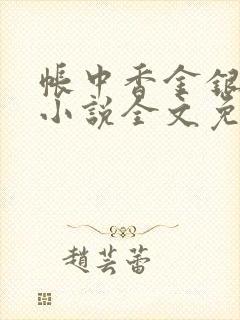 帳中香金銀
小說全文免
趙芸蕾